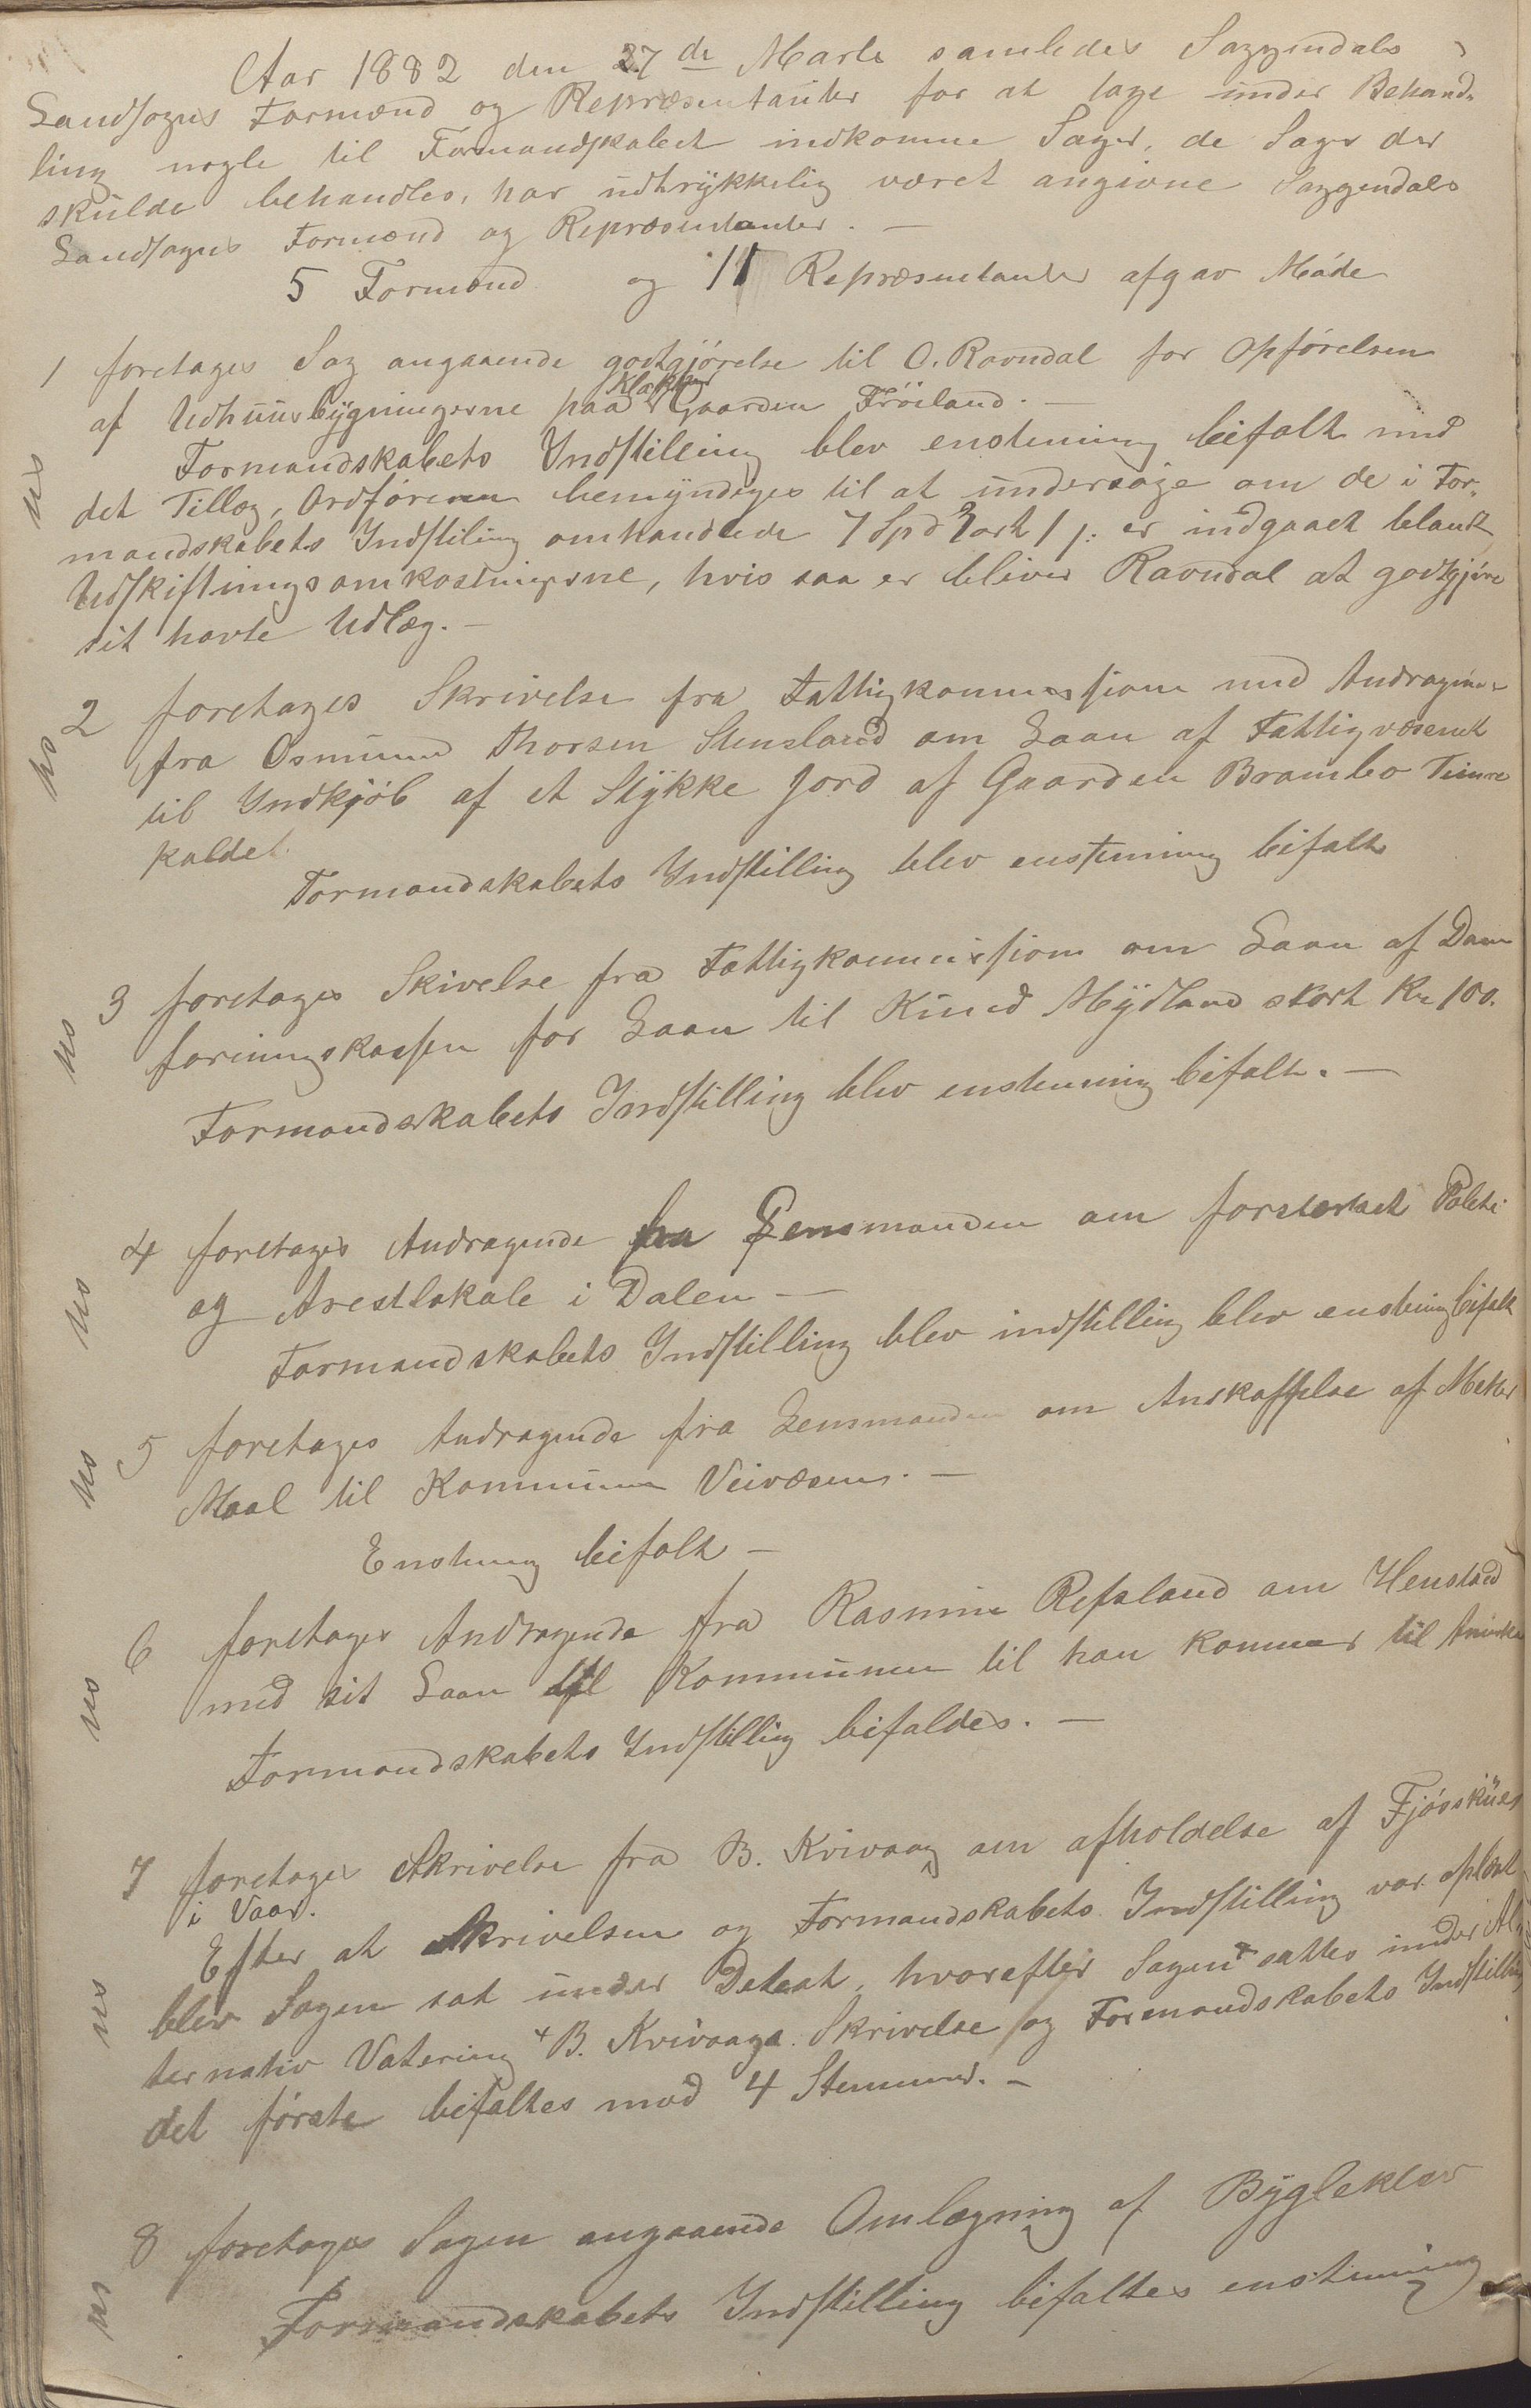 Aar 1882 den 27de Marts samledes Soggendals
Landsogns Formænd og Repræsentanter for at tage under Behand-
ling nogle til Formandskabet indkomne Sager, de Sager der
skulde behandles, har udtrykkelig været angivne Soggendals
Landsogns Formænd og Repræsentanter. —
5 Formænd og 11 Repræsentanter afgav Møde
1 foretages Sag angaaende godtgjørelse til O. Ravndal for Opførelsen
af Udhuusbygningerne paa Klokker Gaarden Frøiland. —
Formandskabets Indstilling blev enstemmig bifalt med
det Tillæg, Ordføreren bemyndiges til at undersøge om de i For-
mandskabets Indstiling omhandlede 7 Spd 3 ort 1 s: er indgaaet blant
Udskiftningsomkostningerne, hvis saa er bliver Ravndal at godtgjøre
sit havte Udlæg. —
2 foretages Skrivelse fra Fattigkommissione med Andragende
fra Osmund Thorsen Stensland om Laan af Fattigvæsenet
til Indkjøb af et Stykke Jord af Gaarden Brambo
kaldet.
Formandskabets Indstilling blev enstemmig bifalt
3 foretages Skivelse fra Fattigkommissione om Laan af Dam
foreningskassen for Laan til Knud Mydland stort Kr 100.
Formandskabets Indstilling blev enstemmig bifalt. —
4 foretages Andragende fra Lensmanden om forstærket Politi
og Arestlokale i Dalen —
Formandskabets Indstilling blev indstilling blev enstemmig bifalt
5 foretages Andragende fra Lensmanden om Anskaffelse af Meter
Maal til Kommunen Veivæsen. —
Enstemig bifalt —
6 foretages Andragende fra Rasmus Refsland om Henstand
med sit Laan til Kommunen til han kommer til Amerika
Formandskabets Indstilling bifaldes. —
7 foretages Skrivelse fra B. Kvivaag om afholdelse af Fjøsskuer
i Vaar.
Efter at Skrivelsen og Formandskabets Indstilling var oplæst
blev Sagen sat under Debat, hvorefter Sagen sattes under Al-
ternativ Votering + B. Kvivaags Skrivelse og Formandskabets Indstilling
det første bifaltes mod 4 Stemmer. —
8 foretages Sagen angaaende Omlægning af Bygleklev
Formandskabets Indstilling bifaltes enstemmig